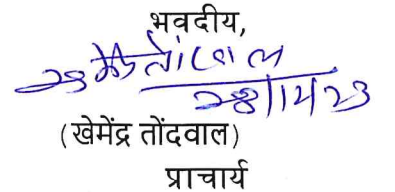 भवदीय,
(खेमेंद्र तोंदवाल)
प्राचार्य